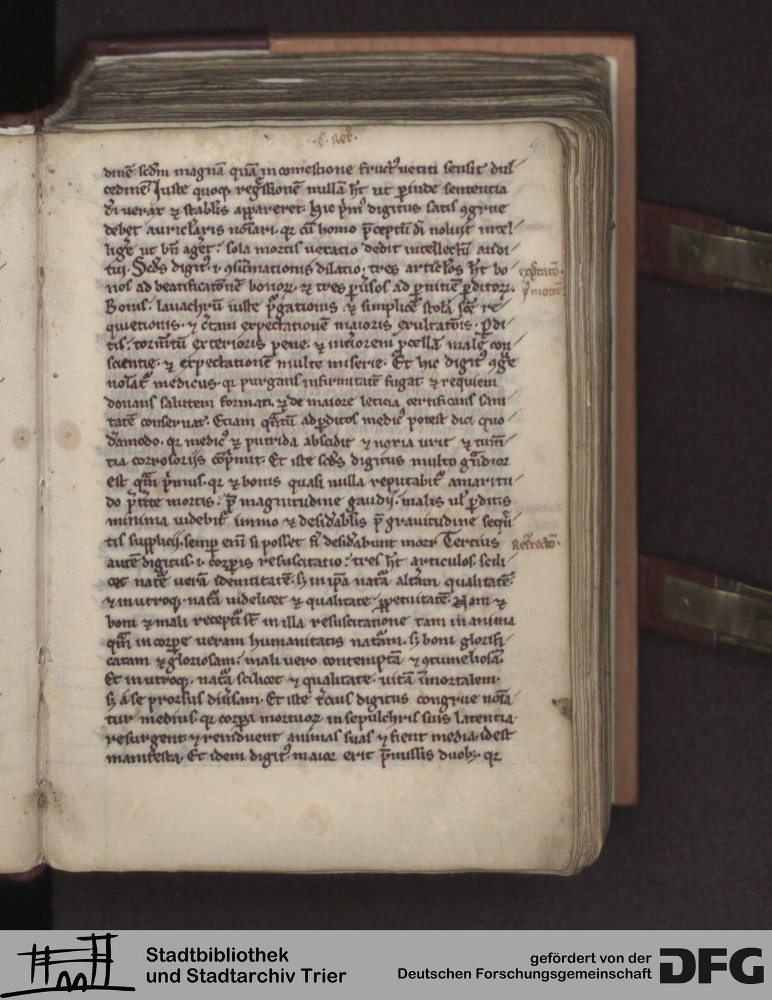 dinē scdm magnā quā in comestione fruct⁹ uetiti sensit dul
cedinē Iuste quoq; reg̃ssionē nullā h̃t ut ꝑinde sententia
di uerax ⁊ stabilis appareret. Hic p̃m⁹ digitus satis ꝯgrue
debet auricłaris noīari. qꝛ cū homo p̃ceptū di noluit intel
lig̃e ut bn̄ ag̃et. sola mortis uetatio dedit intellectū audi
tui. Scd̃s digit⁹ .i. ꝯsūmationis dilatio. tres articlos h̃t bo
nos ad beatificatōnē bonoꝝ. ⁊ tres ꝑuersos ad ꝑnitiē ꝑditoꝝ.
Bonis. lauachrū iuste pgationis ⁊ simplicē stolā sc̃e re
quietionis. ⁊ c̃tam expectationē maioris exultatōis. ꝑdi
tis. torm̃tū exterioris pene. ⁊ intiorem ꝓcellā male con
scientie. ⁊ expectationē multe miserie. Et hic digit⁹ ꝯg̃e
noīat᷑ medicus. qꝛ purgans infirmitatē fugat ⁊ requiem
donans salutem format. ⁊ de maiore leticia certificans sani
tatē conseruat. Etiam q̃ntū ad ꝑditos medic⁹ potest dici quo
dāmodo. qꝛ medic⁹ ⁊ putrida abscidit ⁊ noxia urit ⁊
corrosorijs cop̃mit. Et iste scd̃s digitus multo g̃ndior
est q̃m p̃mus. qꝛ ⁊ bonis quasi nulla reputabit᷑ amaritu
do mortis. p̃ magnitudine gaudij. malis ul ꝑditis
minima uidebit᷑ immo ⁊ desid̃abilis p̃ grauitudine
supplicij. semꝑ eni si posset fi desid̃abunt mori Tercius
autē digitus .i. corꝑis resuscitatio. tres h̃t articulos. scili
cet natē uerā idemtitatē. s; in ip̃a nat̃a alt̃am qualitatē
⁊ in utroq;. nat̃a uidelicet ⁊ qualitate ꝑpetuitatē. Nam ⁊
boni ⁊ mali recepti st̃ in illa resuscitatione tam in anima
q̃m in corꝑe ueram humanitatis nat̃am. s; boni glorifi
catam ⁊ gloriosam. mali uero contemptā ⁊ ꝯtumeliosā.
Et in utroq;. nat̃a scilicet ⁊ qualitate. uitā īmortalem.
s; a se prorsus diūsam. Et iste t̃cius digitus congrue noīa
tur medius. qꝛ corpa mortuoꝝ in sepulchris suis latentia
resurgent ⁊ reinduent animas suas ⁊ fient media. id est
manifesta. Et idem digit⁹ maior erit p̃missis duob;. qꝛ
Stadtbibliothek
und Stadtarchiv Trier
gefördert von der
Deutschen Forschungsgemeinschaft
DFG